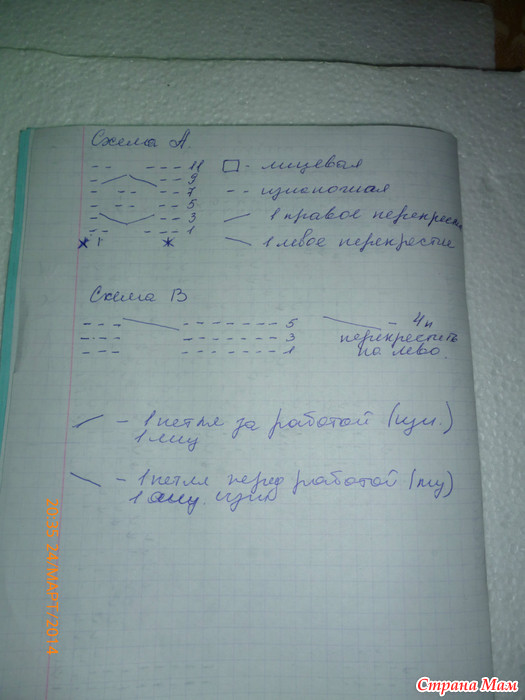 Схема А.
-- --- 11 □ - лицевая
-- --- 9
-- --- 7 -- изнаночная
-- --- 5
- - 3 1 правое перекрестие
-- --- 1 1 левое перекрестие
Схема В
--- ------- 5 - 4п
--- ------- 3 перекрестить
--- ------- 1 на лево.
- 1 петля за работой (изн.)
1 лиц
- 1 петля перед работой (лиц)
1 изн
20:35 24/МАРТ/2014
Страна Мам